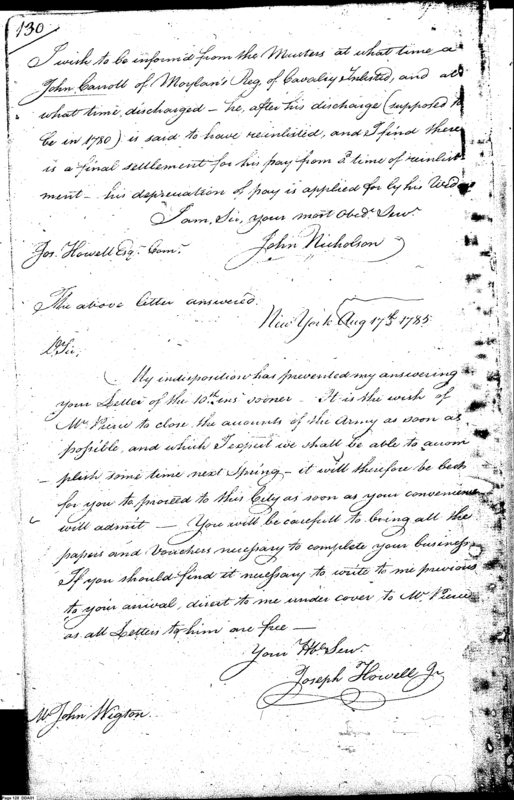 130
I wish to be inform'd from the Musters at what time a
John Carroll of Moylan's Reg. of Cavalry Inlisted, and at
what time discharged – he, after his discharge (supposed to
be in 1780) is said to have reinlisted, and I find there
is a final settlement for his pay from ye time of reinlist
ment – his depreciation of pay is applied for by his Wid
I am, Sir, your most Obedt Serv.
Jos. Howell Esqr. Comr.
John Nicholson
The above letter answered.
New York Aug 17th 1785
Dr Sir,
My indisposition has prevented my answering
your Letter of the 10th ins' sooner – It is the wish of
Mr. Pierce to close the accounts of the Army as soon as
possible, and which I expect we shall be able to accom
– plish some time next Spring – it will therefore be best
for you to proceed to this City as soon as your convenience
will admit – You will be carefull to bring all the
papers and Vouchers necessary to complete your business
If you should find it necessary to write to me previous
to your arrival, direct to me under cover to Mr Pierce
as all Letters to him are free –
Your Hble Serv.
Joseph Howell Jr
Mr John Wigton.
Page 129 DDA01